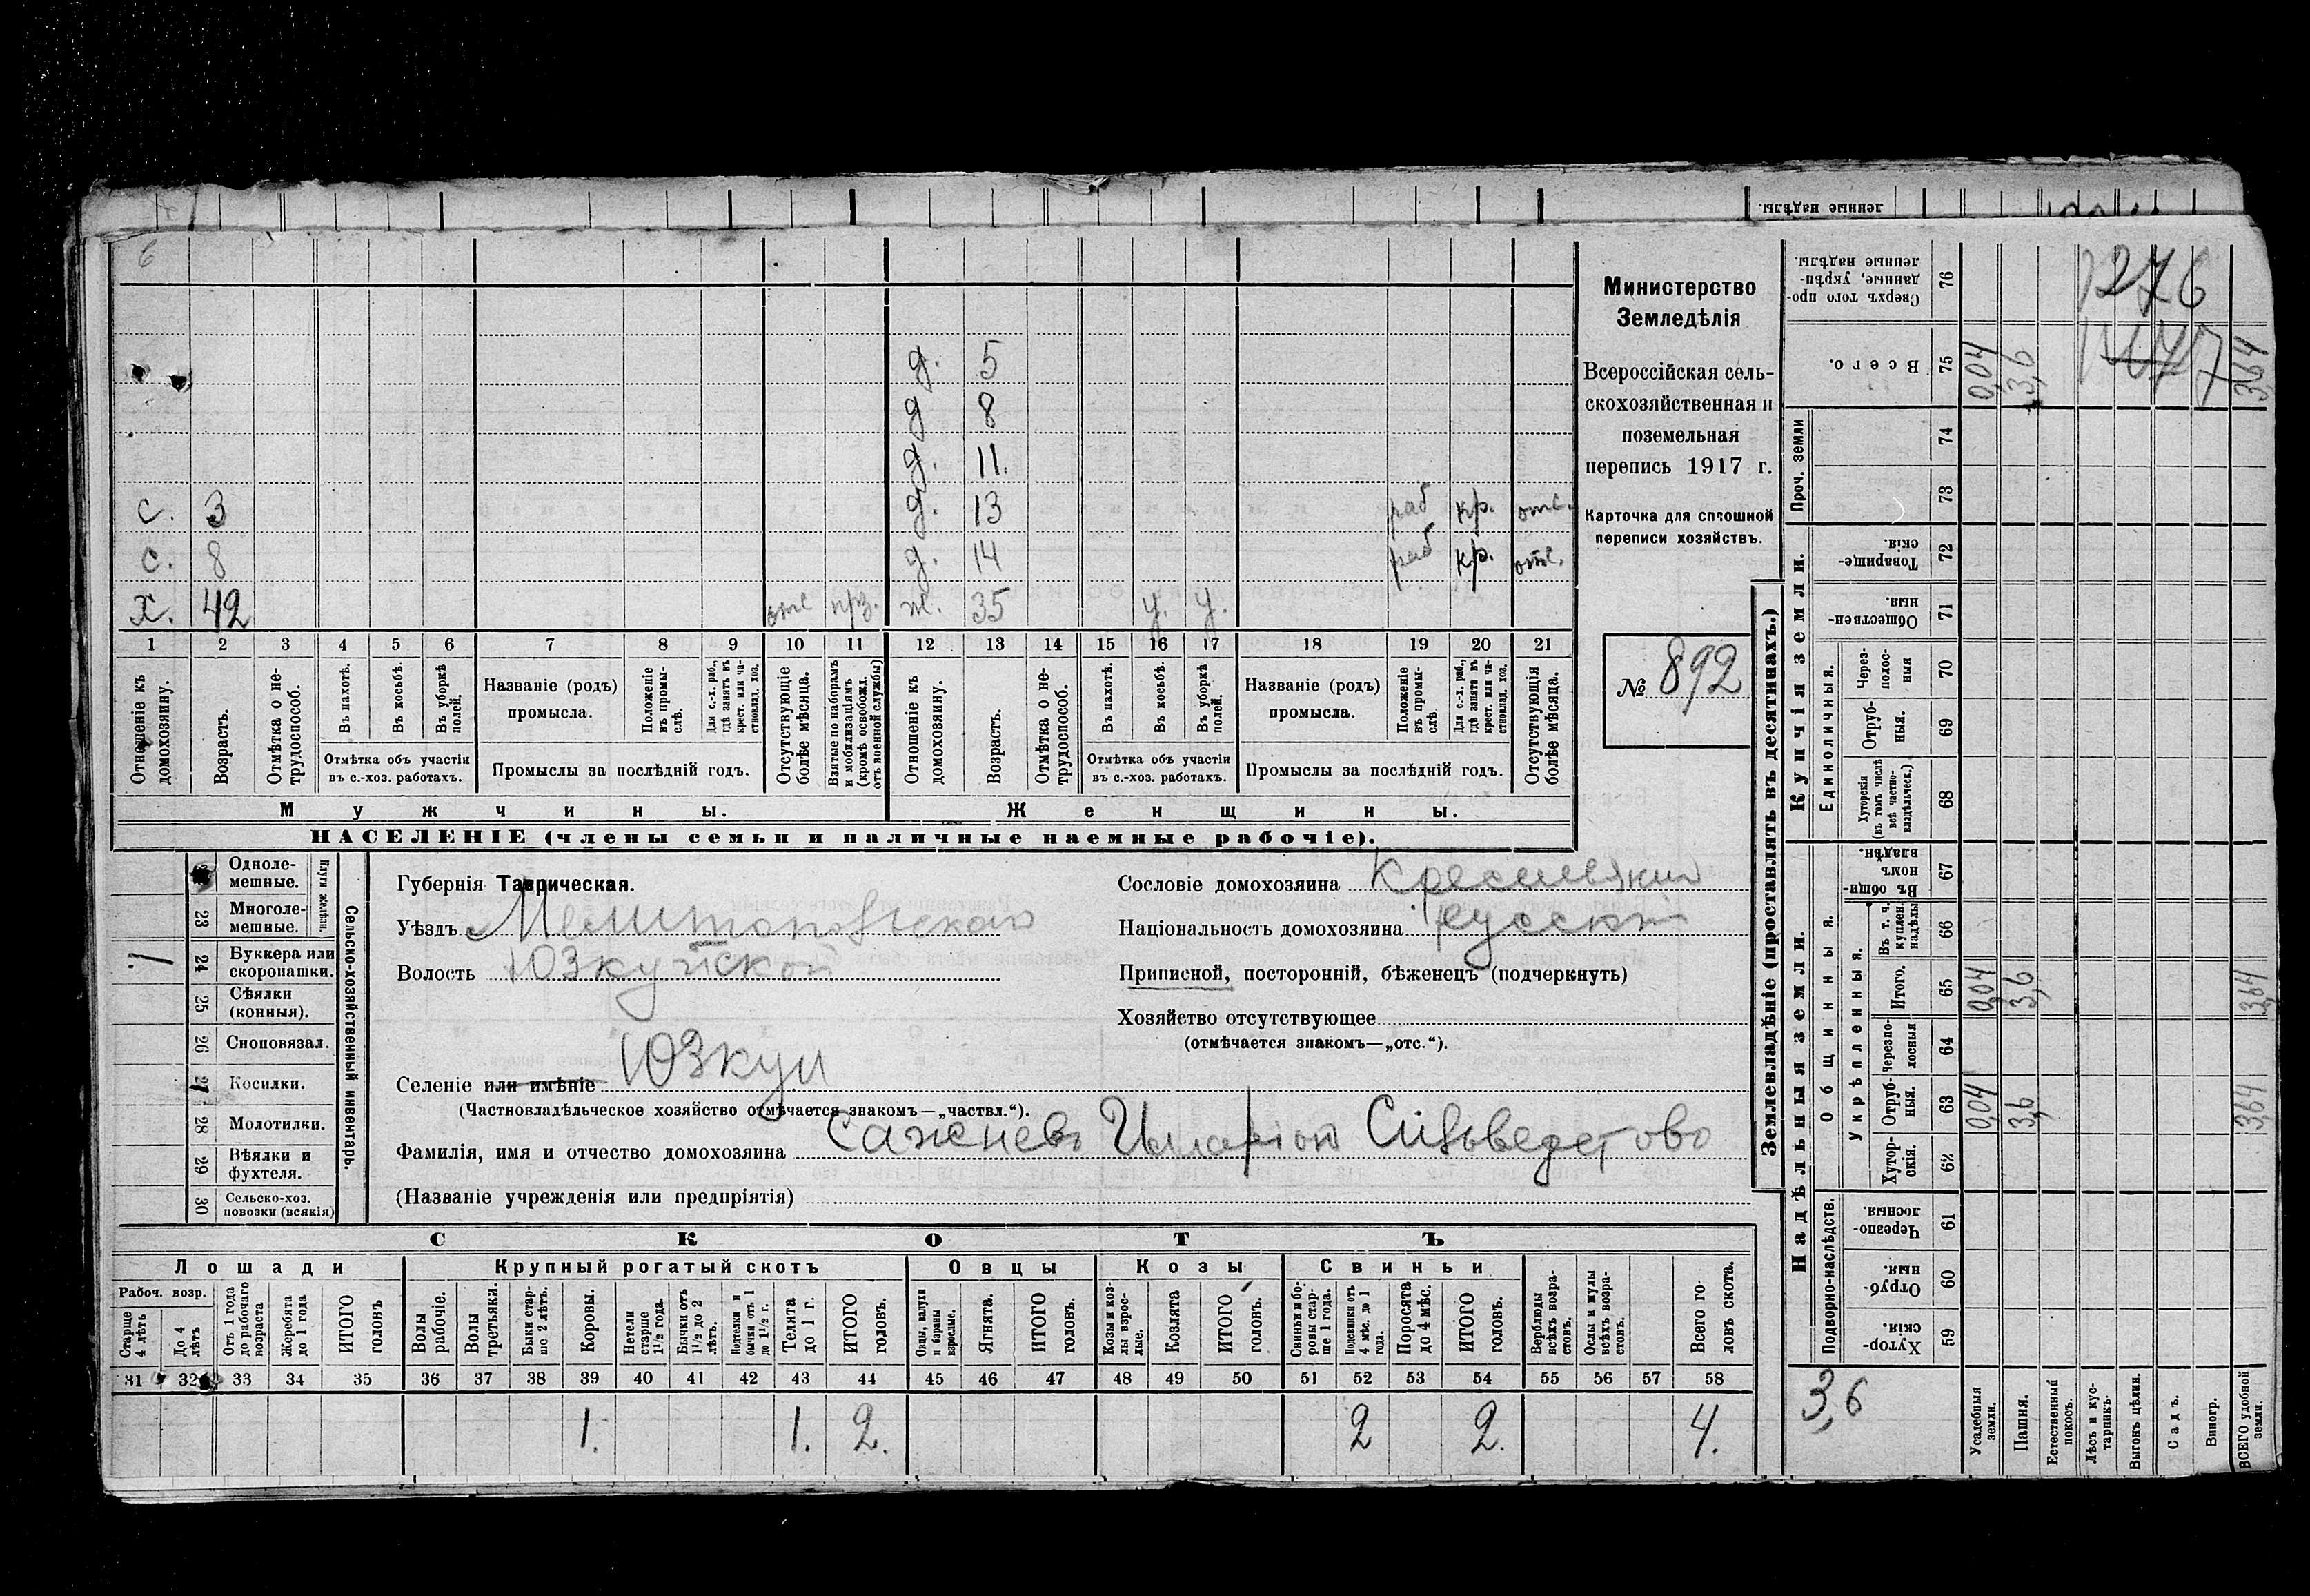 ленные надѣлы.
6
д. 5
д 8
д. 11.
с. 3 д. 13 раб кр. отс.
с. 8 д. 14 раб кр. отс.
х. 42 отс прз. ж. 35 у. у.
1 2 3 4 5 6 7 8 9 10 11 12 13 14 15 16 17 18 19 20 21
Отношеніе къ домохозяину.
Возрастъ.
Отмѣтка о нетрудоспособ.
Въ пахотѣ.
Въ косьбѣ.
Въ уборкѣ полей.
Отмѣтка объ участіи
въ с.-хоз. работахъ.
Названіе (родъ)
промысла.
Положеніе въ промыслѣ.
Для с.-х. раб., гдѣ занятъ въ крест. или частновлад. хоз.
Промыслы за послѣдній годъ.
Отсутствующіе болѣе мѣсяца.
Взятые по наборамъ и мобилизаціямъ (кромѣ освобожд. отъ военной службы)
Отношеніе къ домохозяину.
Возрастъ.
Отмѣтка о нетрудоспособ.
Въ пахотѣ.
Въ косьбѣ.
Въ уборкѣ полей.
Отмѣтка объ участіи
въ с.-хоз. работахъ.
Названіе (родъ)
промысла.
Положеніе въ промыслѣ
Для с.-х. раб., гдѣ занята въ крест. или частновлад. хоз.
Промыслы за послѣдній годъ.
Отсутствующія болѣе мѣсяца.
Мужчины. Женщины.
НАСЕЛЕНІЕ (члены семьи и наличные наемные рабочіе).
Министерство
Земледѣлія
Всероссійская сель-
скохозяйственная и
поземельная
перепись 1917 г.
Карточка для сплошной
переписи хозяйствъ.
№ 892
Сельско-хозяйственный инвентарь.
Плуги желѣзн.
Одноле-
мешные.
23 Многоле-
мешные.
1 24 Буккера или
скоропашки.
25 Сѣялки
(конныя).
26 Сноповязал.
27 Косилки.
28 Молотилки.
29 Вѣялки и
фухтеля.
30 Сельско-хоз.
повозки (всякія)
Губернія Таврическая.
Уѣздъ Мелитопольскаго
Волость Юзкуйской
Селеніе или имѣніе Юзкуи
(Частновладѣльческое хозяйство отмѣчается знакомъ—„частвл.“).
Фамилія, имя и отчество домохозяина Сажневъ Иларіон Сильведстово
(Названіе учрежденія или предпріятія)
Сословіе домохозяина
Національность домохозяина русскій
Приписной, посторонній, бѣженецъ (подчеркнуть)
Хозяйство отсутствующее
(отмѣчается знакомъ—„отс.“).
СКОТЪ
Лошади Крупный рогатый скотъ Овцы Козы Свиньи
Рабоч. возр.
Старше 4 лѣтъ
До 4 лѣтъ
Отъ 1 года до рабочаго возраста
Жеребята до 1 года
ИТОГО головъ
Волы рабочіе.
Волы третьяки.
Быки старше 2 лѣтъ.
Коровы.
Нетели старше 1½ года.
Бычки отъ 1½ до 2 лѣтъ.
Нетелки и бычки отъ 1 до 1½ г.
Телята до 1 г.
ИТОГО головъ.
Овцы, валухи и бараны взрослые.
Ягнята.
ИТОГО головъ.
Козы и козлы взрослые.
Козлята
ИТОГО головъ.
Свиньи и боровы старше 1 года.
Подсвинки отъ 4 мѣс. до 1 года.
Поросята до 4 мѣс.
ИТОГО головъ.
Верблюды всѣхъ возрастовъ.
Ослы и мулы всѣхъ возрастовъ.
Всего головъ скота.
31 32 33 34 35 36 37 38 39 40 41 42 43 44 45 46 47 48 49 50 51 52 53 54 55 56 57 58
1. 1. 2. 2 2. 4.
Землевладѣніе (проставлять въ десятинахъ.)
Купчія земли.
Надѣльныя земли.
Сверхъ того проданные, укрѣпленные надѣлы. 76 1276
Всего. 75 0,04 3,6 3,64
Проч. земли
74
73
Товарищескія. 72
Общественныя. 71
Единоличныя.
Черезполосныя 70
Отрубныя. 69
Хуторскія (въ томъ числѣ всѣ частновладѣльческ.) 68
Общинныя.
Въ общиномъ владѣн. 67
Укрѣпленныя.
Въ т. ч. куплен. надѣлы 66
Итого. 65 0,04 3,6 3,64
Черезполосныя 64
Отрубныя. 63 0,04 3,6 3,64
Хуторскія. 62
Подворно-наслѣдств.
Черезполосныя. 61
Отрубныя. 60
Хуторскія. 59
3,6
Усадебныя земли.
Пашня.
Естественный покосъ.
Лѣсъ и кустарникъ
Выгонъ цѣлин.
Садъ.
Виногр.
ВСЕГО удобной земли.